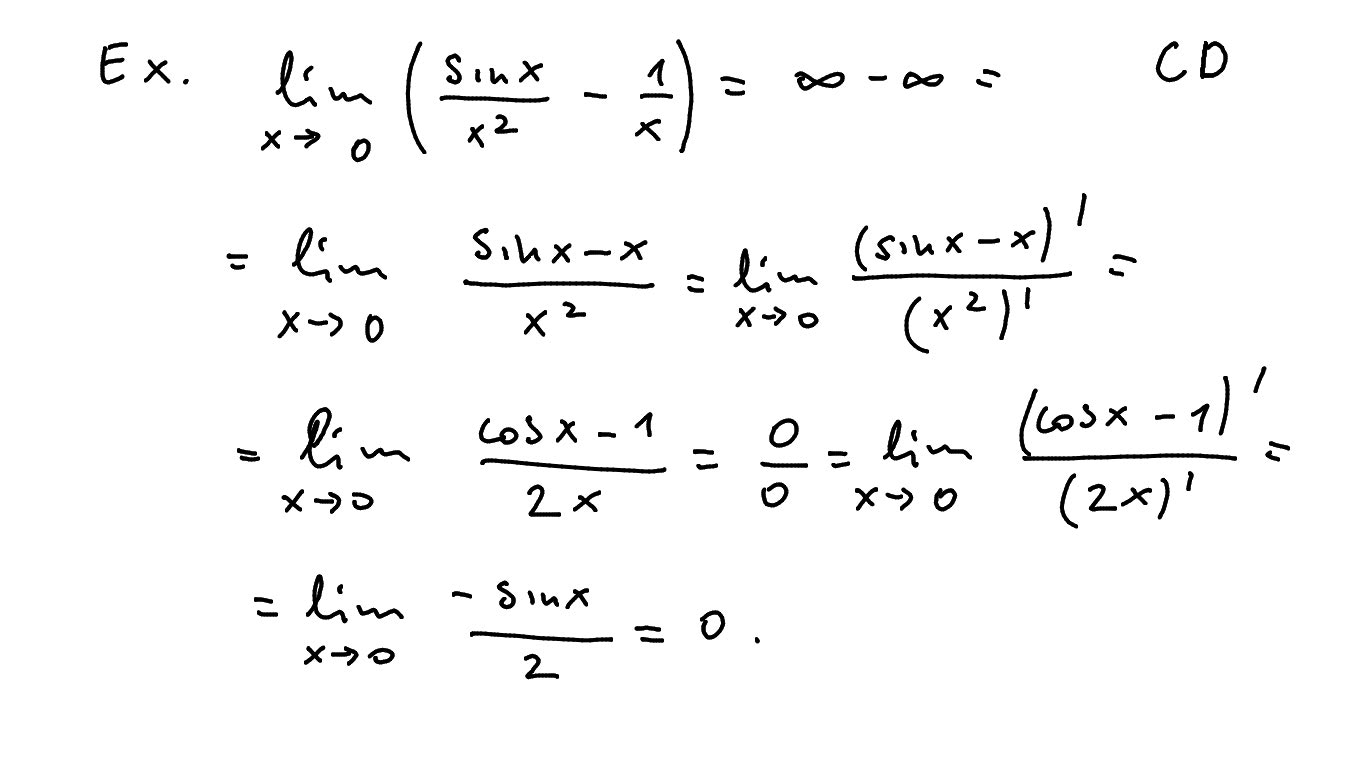 Ex. lim_{x→0} ( sinx/x² − 1/x ) = ∞ − ∞ = CD
= lim_{x→0} (sinx − x)/x² = lim_{x→0} (sinx − x)'/(x²)' =
= lim_{x→0} (cosx − 1)/2x = 0/0 = lim_{x→0} (cosx − 1)'/(2x)' =
= lim_{x→0} −sinx/2 = 0.